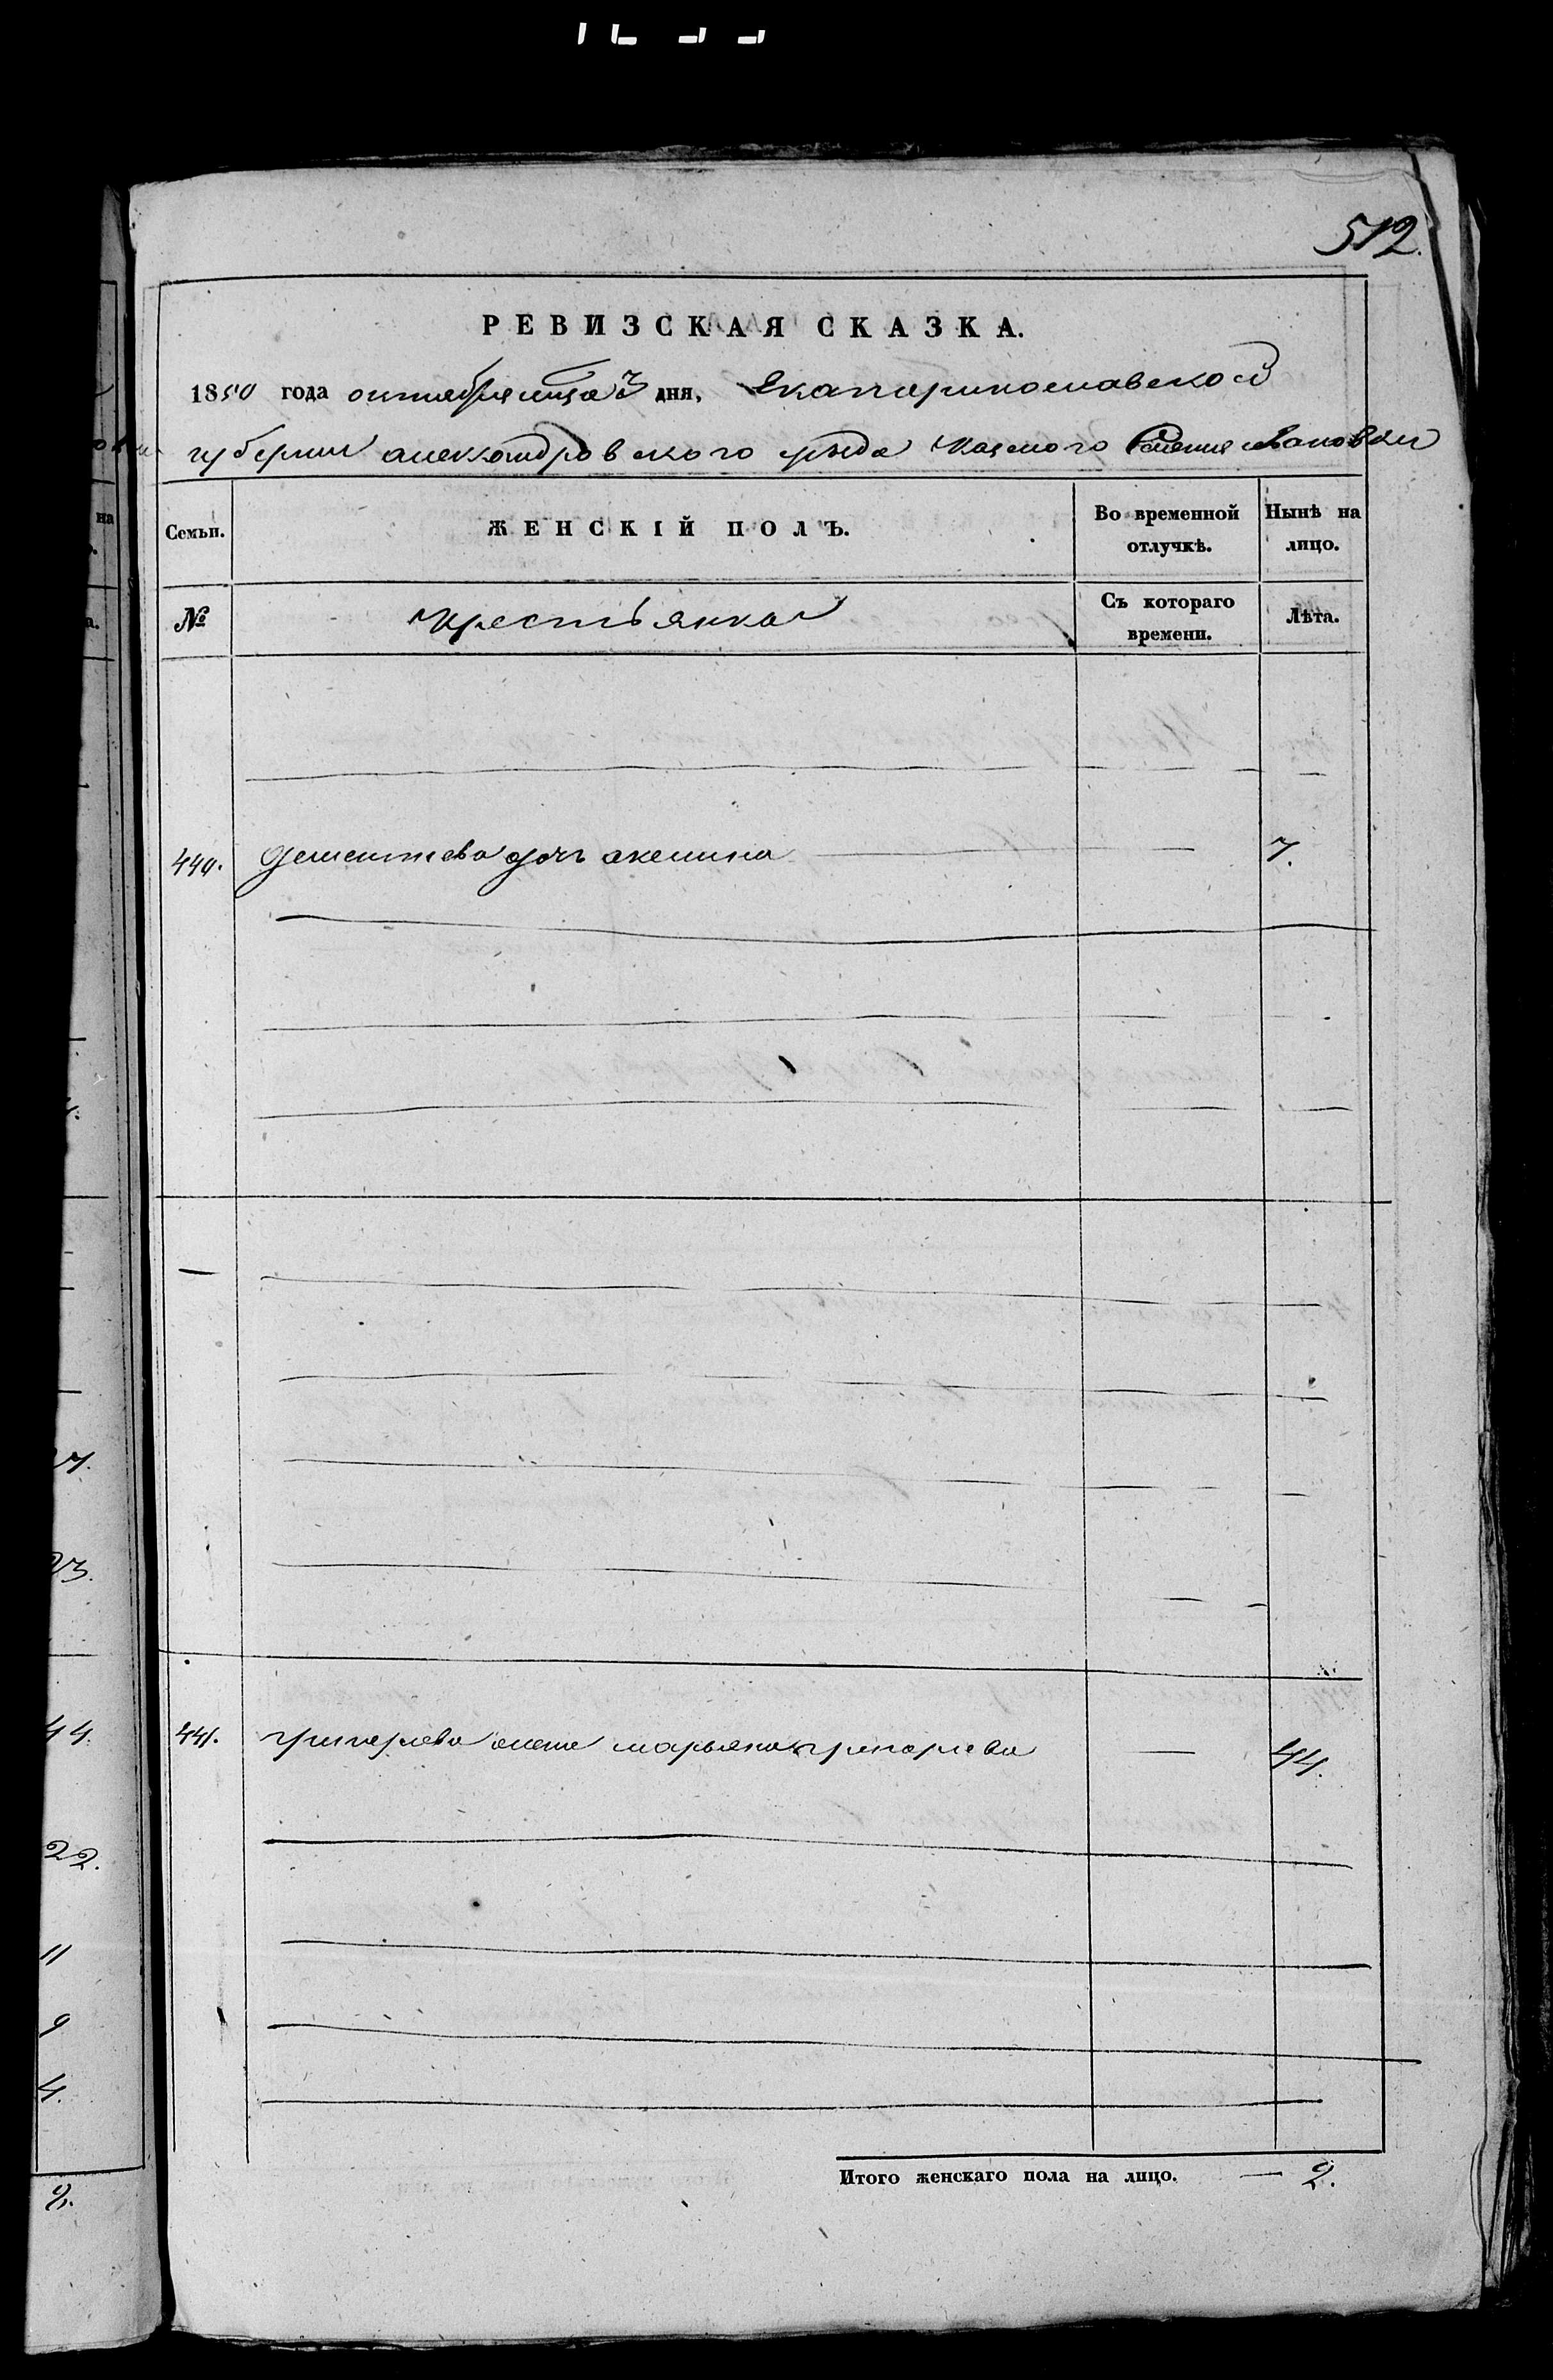 512.
РЕВИЗСКАЯ СКАЗКА.
1850 года октября мца 3 дня, Екатеринославской
губернии александровского уезда казеного Селения
Семьи.
ЖЕНСКІЙ ПОЛЪ.
Во временной
отлучкѣ.
Нынѣ на
лицо.
№
крестьянка
Съ котораго
времени.
Лѣта.
440. Дементиева дочь аксиниа 7.
441. григориева жена марьяна григориева 44.
Итого женскаго пола на лицо. — 2.
на
17.
23.
44.
22.
11
9
4.